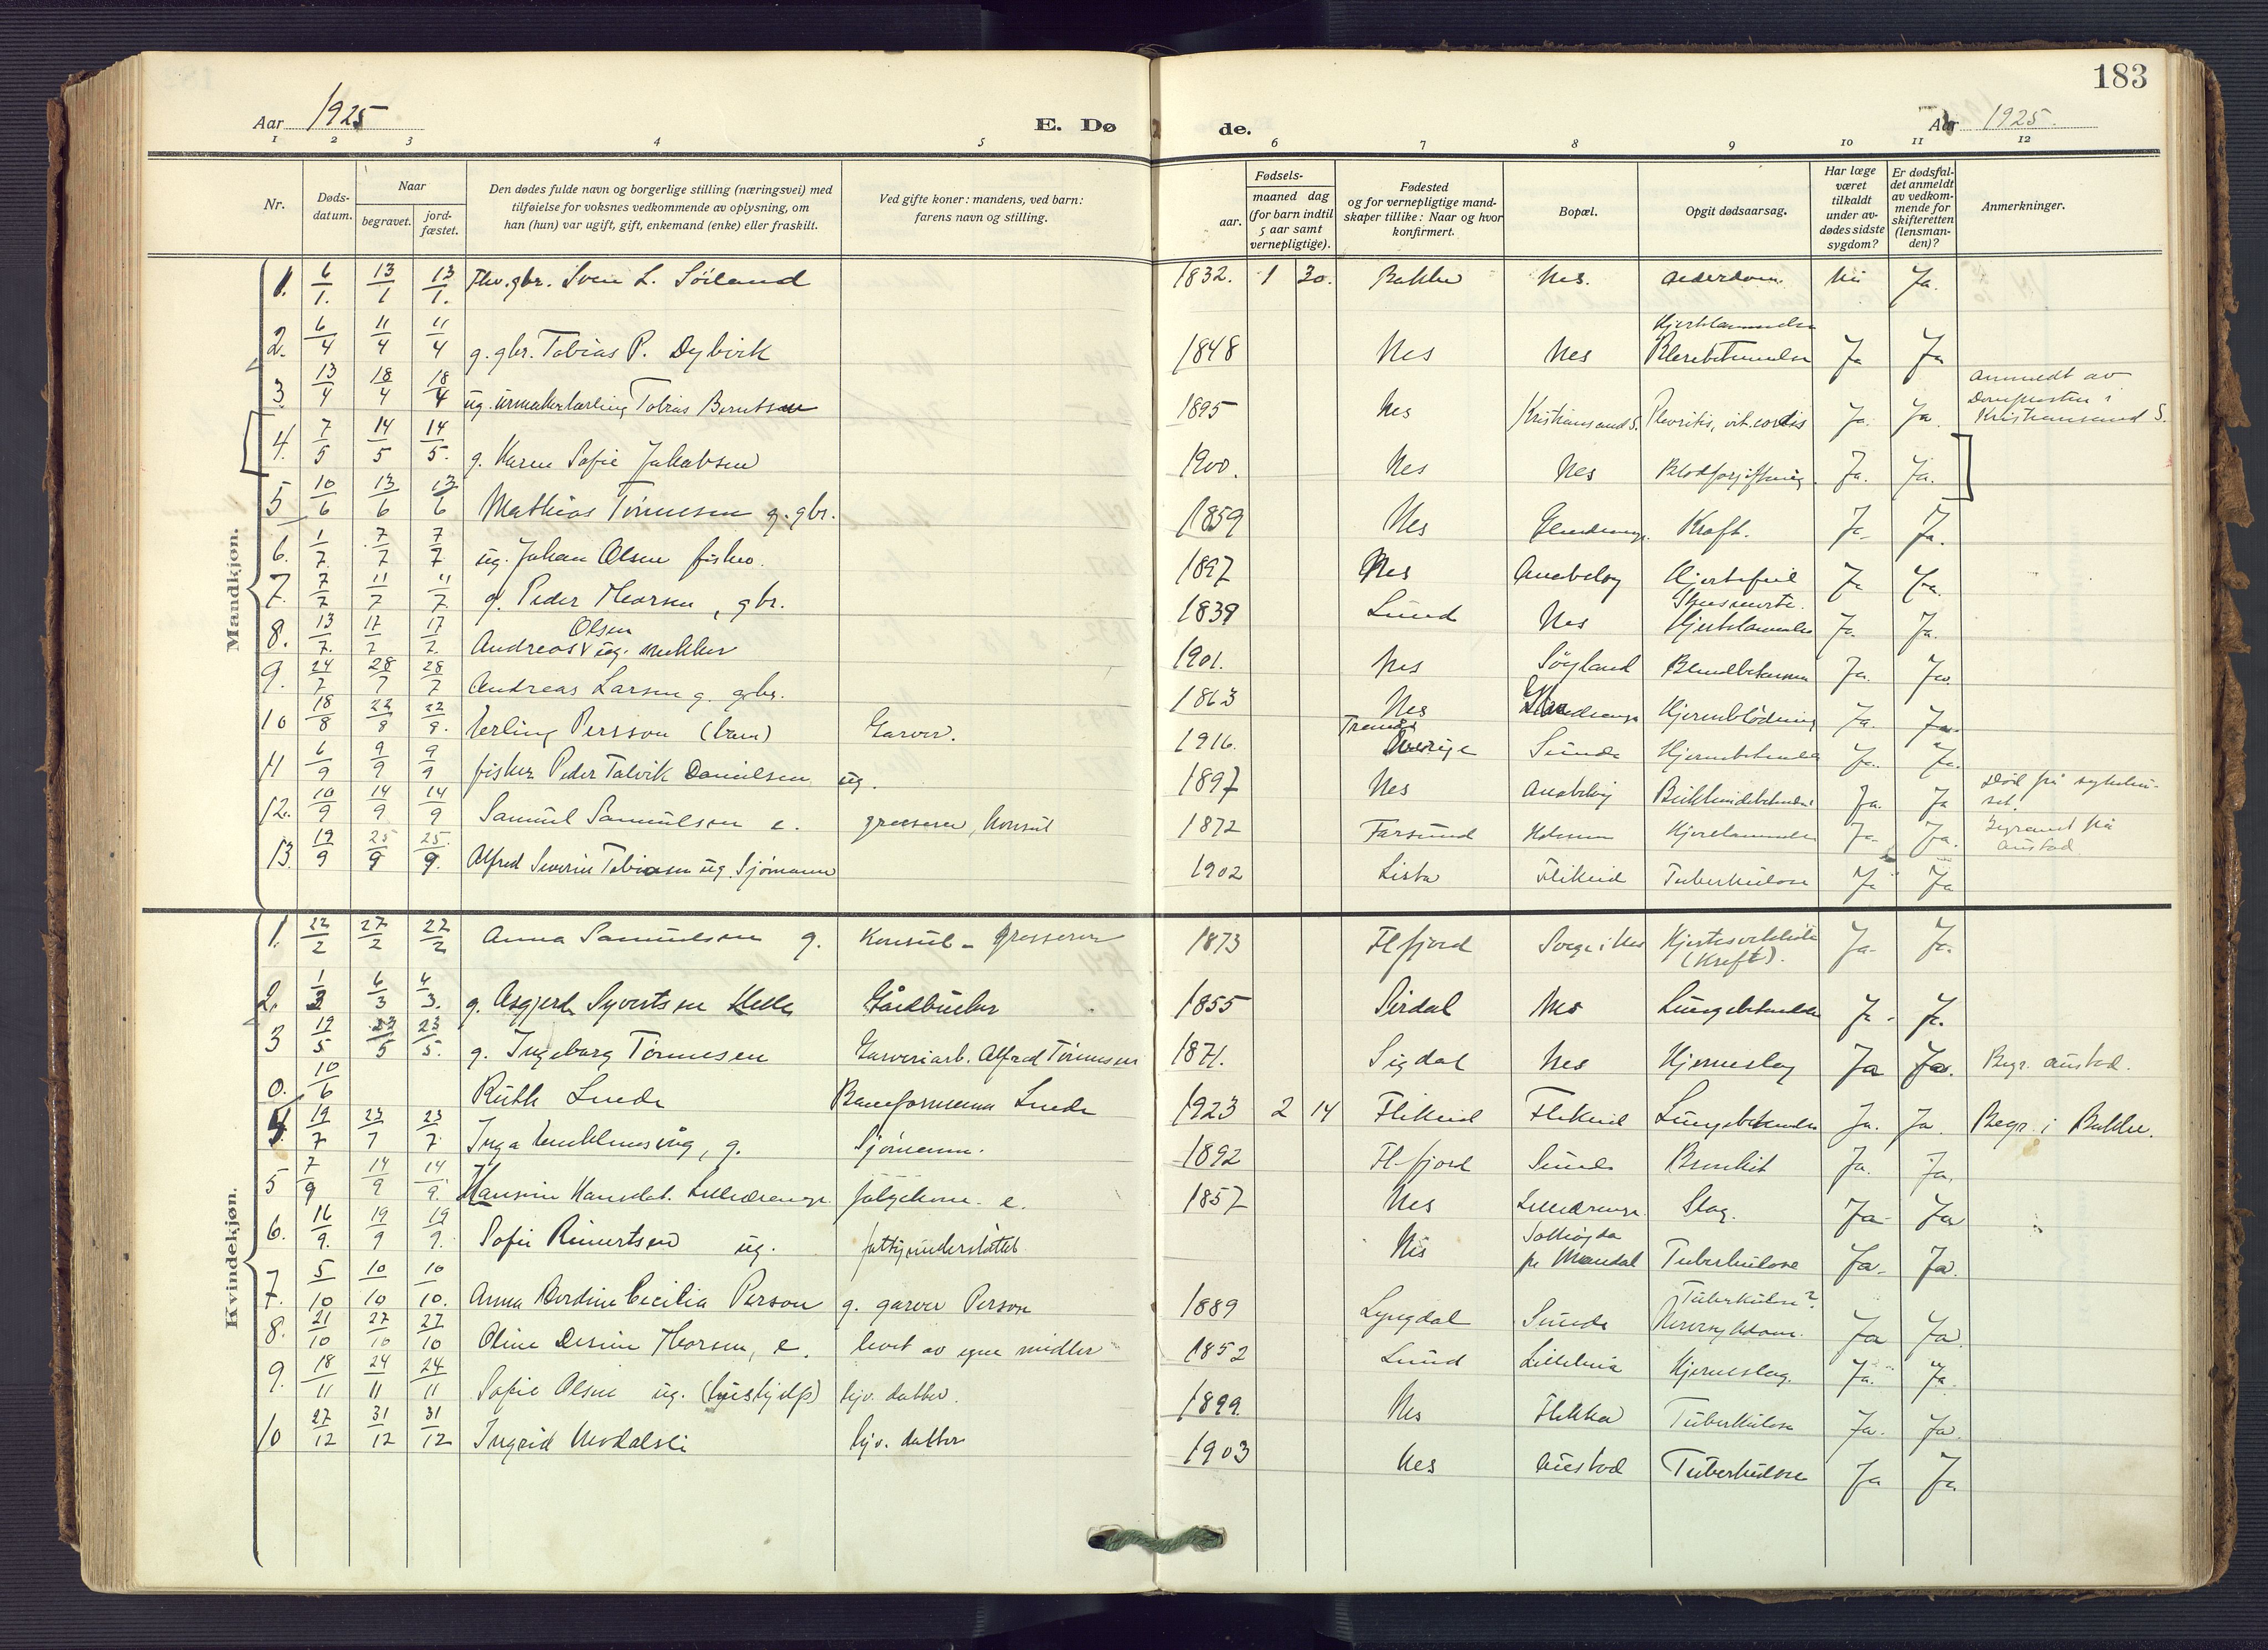 183
Aar 1925
E. Dø de.
Aar 1925.
1 2 3 4 5 6 7 8 9 10 11 12
Nr.
Døds-
datum.
Naar
begravet.
jord-
fæstet.
Den dødes fulde navn og borgerlige stilling (næringsvei) med
tilføielse for voksnes vedkommende av oplysning, om
han (hun) var ugift, gift, enkemand (enke) eller fraskilt.
Ved gifte koner: mandens, ved barn:
farens navn og stilling.
Fødsels-
aar.
maaned dag
(for barn indtil
5 aar samt
vernepligtige).
Fødested
og for vernepligtige mand-
skaper tillike: Naar og hvor
konfirmert.
Bopæl.
Opgit dødsaarsag.
Har læge
været
tilkaldt
under av-
dødes sidste
sygdom?
Er dødsfal-
det anmeldt
av vedkom-
mende for
skifteretten
(lensman-
den)?
Anmerkninger.
Mandkjøn.
1. 6/1. 13/1 13/1. gbr. Sven L. Söiland 1832. 1 30. Bakke Nes. Alderdom. Nei Ja.
2. 6/4 11/4 11/4 g. gbr. Tobias P. Dybvik 1848 Nes Nes Ja Ja
3 13/4 18/4 18/4 ug. urmakerlærling Tobias Berntsen 1895 Nes Kristiansand S. Pleuritis, vit. cordis Ja. Ja. anmeldt av Domprosten i Kristiansand S.
4. 7/5 14/5 14/5. g. Karen Sofie Jakobsen 1900. Nes Nes Blodforgiftning. Ja. Ja.
5 10/6 13/6 13/6 Mathias Tönnesen g. gbr. 1859 Nes Kræft. Ja. Ja.
6. 1/7. 7/7 7/7 ug. Johan Olsen fisker. 1897 Nes Anabeløy Hjertefeil Ja Ja.
7. 7/7 11/7 11/7 g. Peder Thorsen, gbr. 1839 Lund Nes Hjertelammelse Ja. Ja.
8. 13/7. 17/7 17/7. Andreas Olsen ug. snekker 1901. Nes Söyland Ja. Ja.
9. 24/7 28/7 28/7 Andreas Larsen g. gbr. 1863 Nes Hjerneblödning Ja. Ja.
10 18/8 22/8 22/8. Erling Persson (barn) Garver. 1916. Sverige Sunde Hjernebetendelse Ja. Ja.
11 6/9 9/9 9/9 fisker Peder Talvik Danielsen ug. 1897 Nes Anabeløy Ja. Ja död på sykehuset.
12. 10/9 14/9 14/9 Samuel Samuelsen e. grosserer, konsul 1872 Farsund Hjertelammelse Ja. Ja. på Austad
13. 19/9 25/9 25/9. Alfred Severin Tobiasen ug. Sjömann 1902 Lista Flikeid Tuberkulose Ja Ja
Kvindekjøn.
1. 22/2 27/2 27/2 Anna Samuelsen g. Konsul - Grosserer 1873 Fl.fjord (Kreft). Ja. Ja.
2. 1/3 6/3 4/3. g. Asgjerd Syvertsen Gårdbruker 1855 Sirdal Nes Lungebetendelse Ja. Ja.
3 19/5 23/5 23/5. g. Ingeborg Tönnesen Garveriarb. Alfred Tönnesen 1871. Sigdal Nes Hjerneslag Ja Ja. Begr. Austad.
0. 10/6 Ruth Lunde Baneformann Lunde 1923 2 14 Flikeid Flikeid Lungebetendelse Ja. Ja. Begr. i Bakke.
4. 19/7 23/7 23/7 Inga g. Sjömann. 1892 Fl.fjord Sunde Ja. Ja.
5 7/9 14/9 14/9. Lilledrange e. 1857 Nes Lilledrange Slag. Ja Ja
6. 16/9. 19/9 19/9. Sofie Reinertsen ug. fattigunderstöttet Nes pr Mandal Tuberkulose Ja. Ja.
7. 5/10 10/10 10/10. Anna Bordine Cecilia Person g. garver Person 1889 Lyngdal Sunde Tuberkulose? Nervesykdom. Ja Ja
8. 21/10 27/10 27/10 Oline Thorsen, e. levet av egne midler 1852 Lund Hjerneslag. Ja. Ja.
9. 18/11 24/11 24/11 Sofie Olsen ug. (hushjelp) hjv. datter. 1899. Nes Flikka Tuberkulose Ja. Ja.
10 27/12 31/12 31/12 Ingrid hjv. datter 1903 Nes Austad Tuberkulose Ja Ja